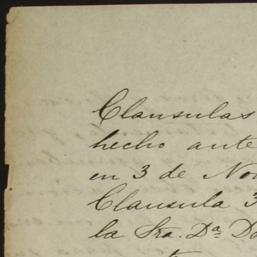 Clausulas
hecho ante
en 3 de Nov
Clausula 3
la Sra. Dª Do